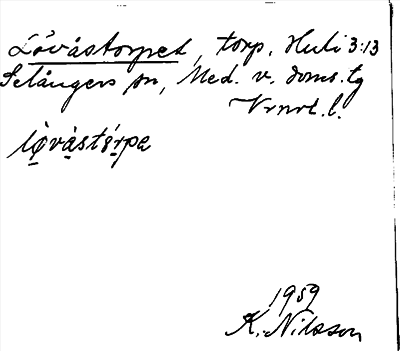 Lövåstorpet, torp, Huli 3:13
Selångers sn, Med. v. doms.tg
Vrnrt. l.
lǫvåstǫrpa
1959
K. Nilsson